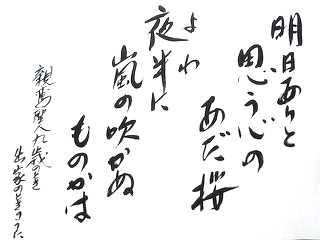 明日ありと
思う心の
あだ桜
よわ
夜半に
嵐の吹かぬ
ものかは
親鸞聖人九歳のとき
出家のときうた